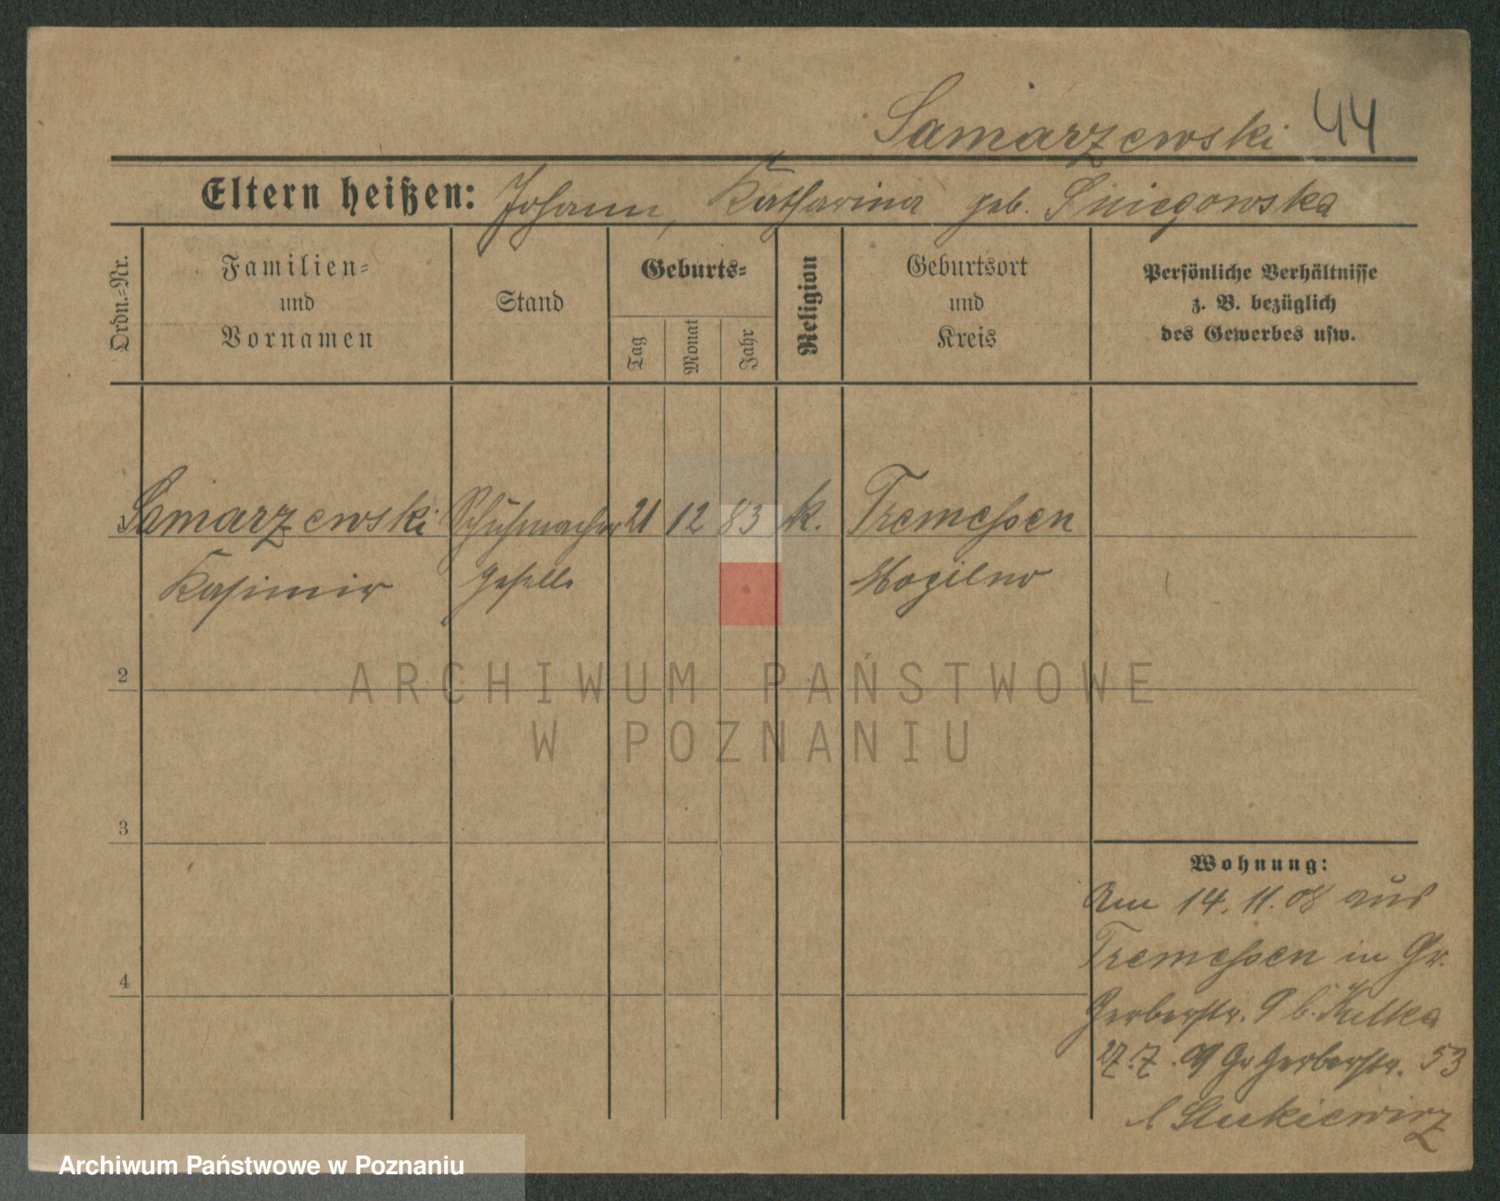 Samarzewski 44
Eltern heißen: Johann, Katharina geb. Sniegowska
Ordn.-Nr.
Familien-
und
Vornamen
Stand
Geburts-
Tag
Monat
Jahr
Religion
Geburtsort
und
Kreis
Persönliche Verhältnisse
z. B. bezüglich
des Gewerbes usw.
Samarzewski Schuhmacher 21 12 83 k. Tremessen
Kasimir geselle Mogilno
2
ARCHIWUM PAŃSTWOWE
W POZNANIU
3
Wohnung:
Am 14. 11. 08 aus
Tremessen in Gr.
4
Gerberstr. 9 b. Kulka
27. 7. 09 Gr Gerberstr. 53
Archiwum Państwowe w Poznaniu